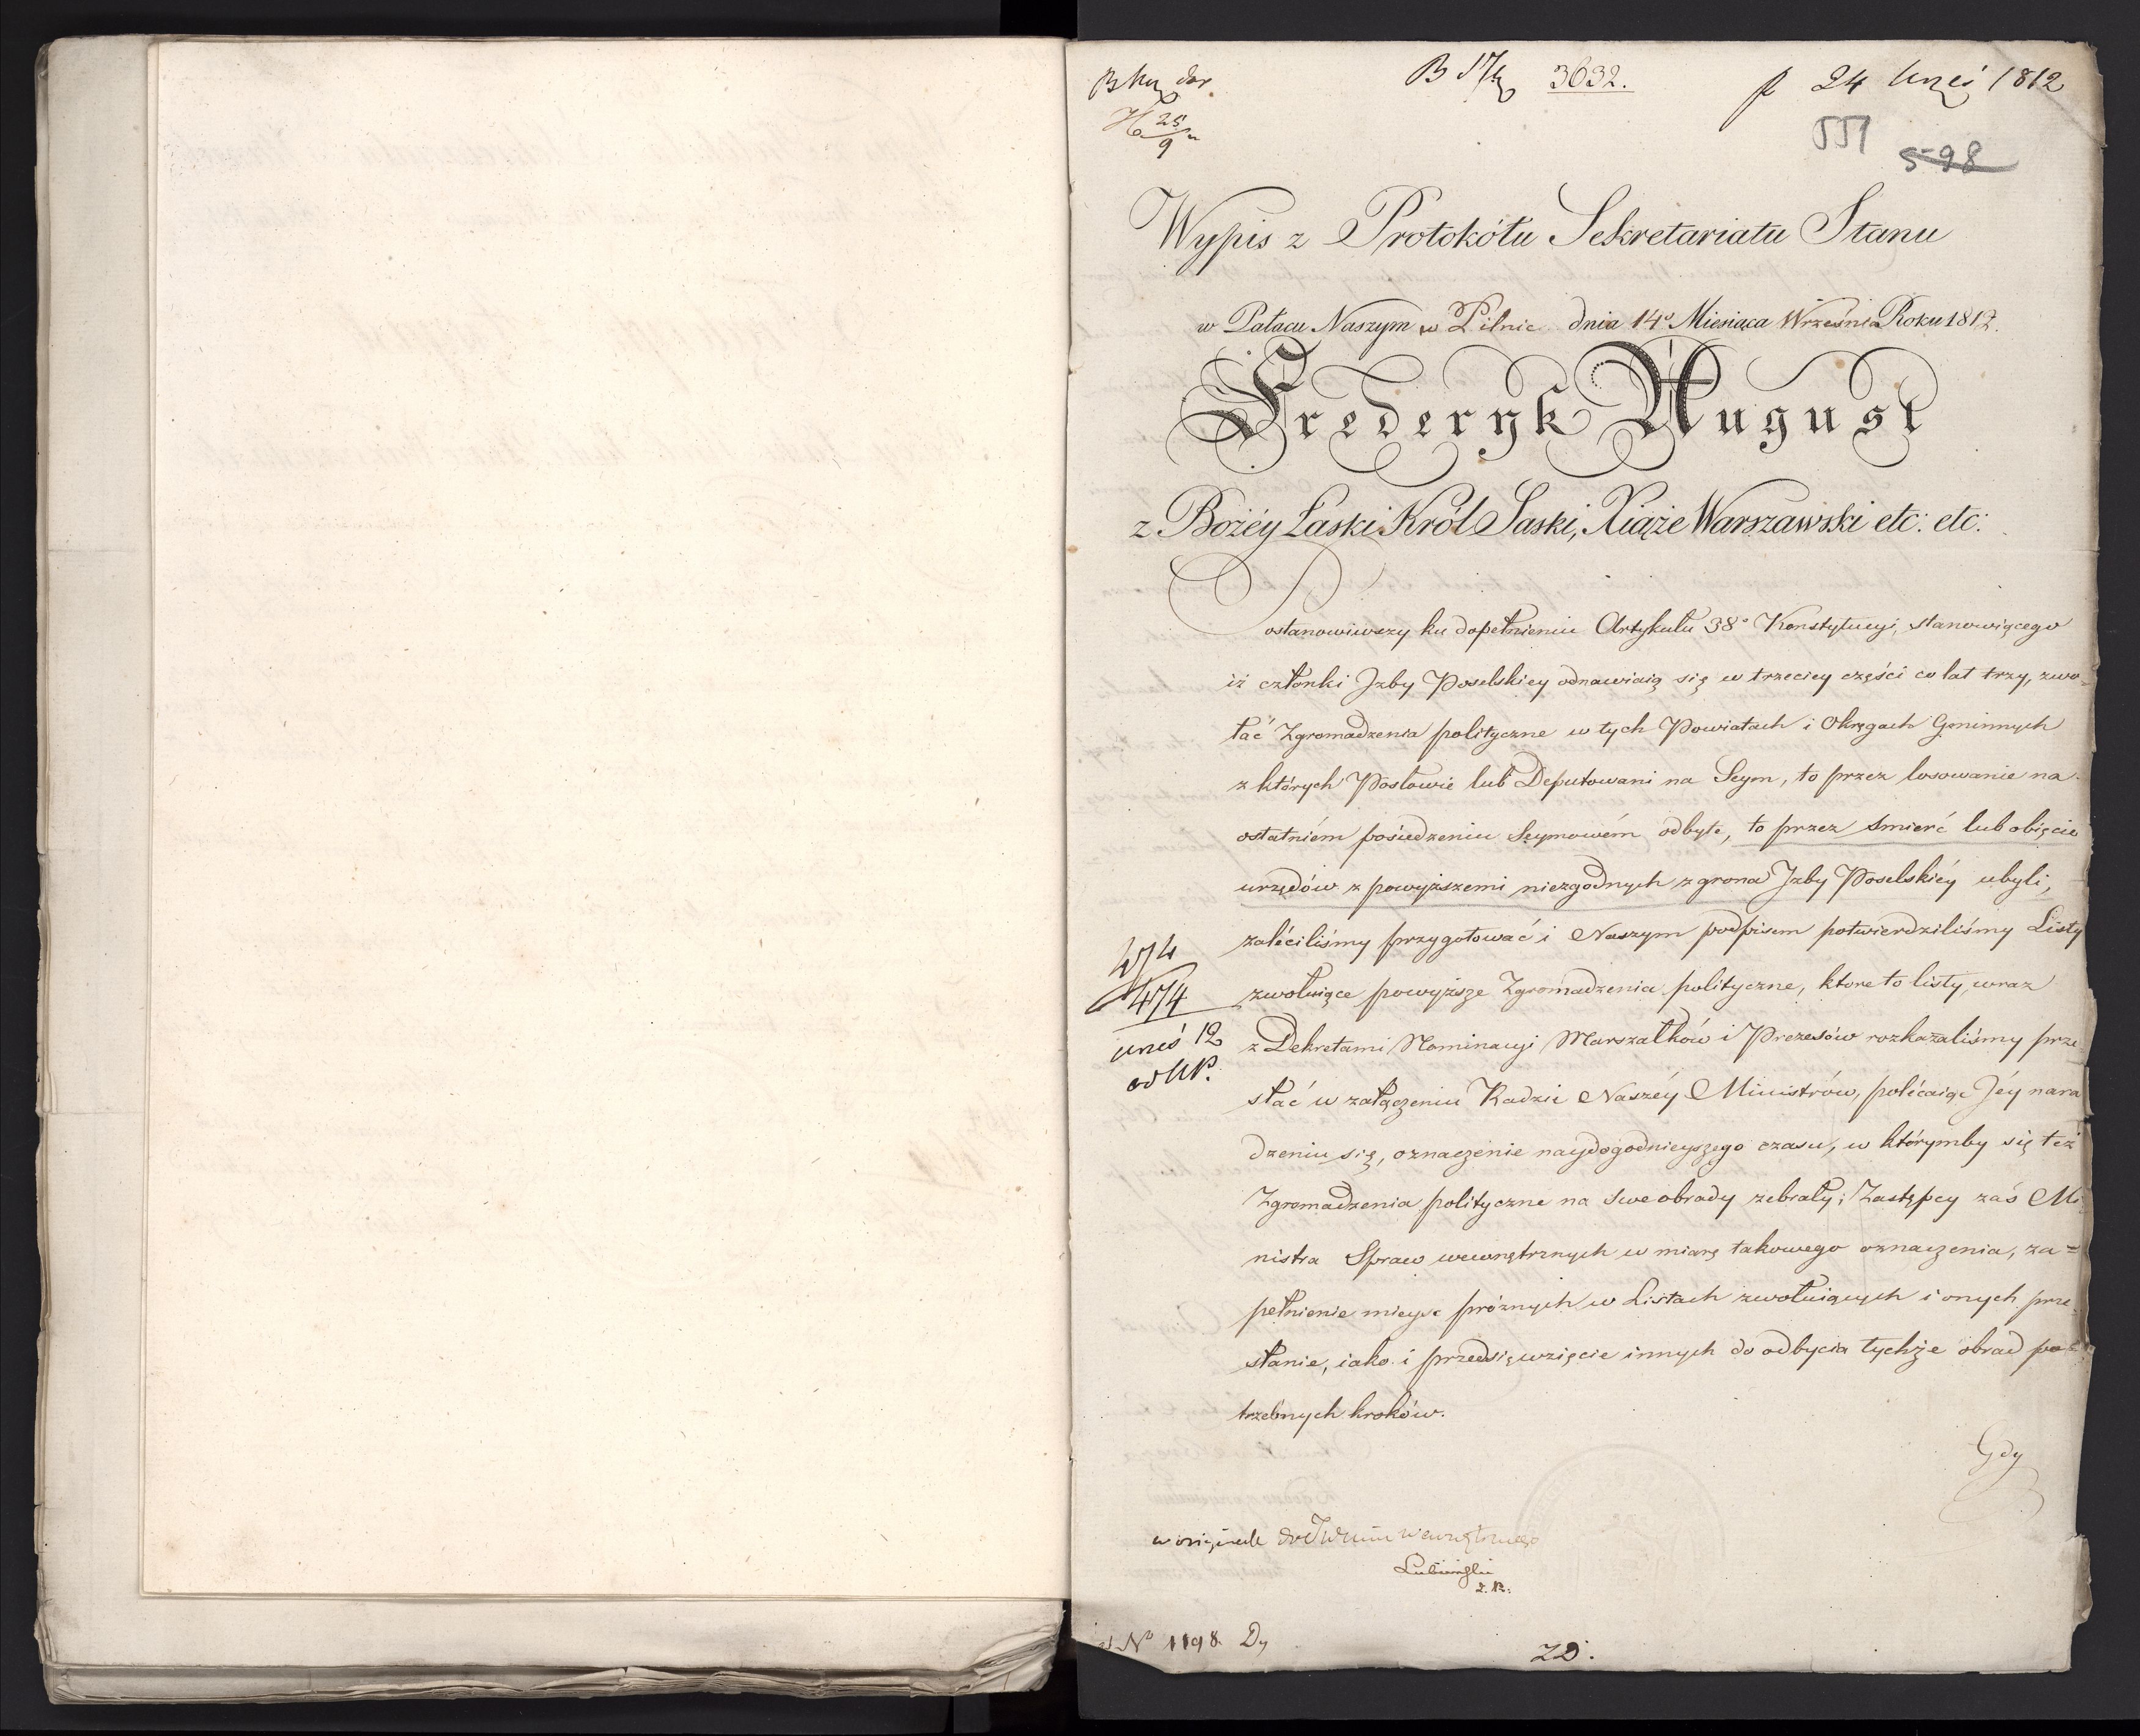 3632.
24 1812
551
598
Wypis z Protokółu Sekretariatu Stanu
w Pałacu Naszym w Pilnic dnia 14º Miesiąca Września Roku 1812.
Frederyk August
z Bożéy Łaski Król Saski, Xiąże Warszawski etc: etc:
Postanowiwszy ku dopełnieniu Artykułu 38º Konstytucyi, stanowiącego
iż członki Jzby Poselskiey odnawiaią się w trzeciey części co lat trzy, zwo-
łać Zgromadzenia polityczne w tych Powiatach i Okręgach Gminnych
z których Posłowie lub Deputowani na Seym, to przez losowanie na
ostatniém posiedzeniu Seymowém odbyte, to przez smierć lub obięcie
urzędów z powyższemi niezgodnych z grona Jzby Poselskiéy ubyli,
zaléciliśmy przygotować i Naszym podpisem potwierdziliśmy Listy
zwołuiące powyższe Zgromadzenia polityczne, ktore to listy wraz
z Dekretami Nominacyi Marszałków i Prezesów rozkazaliśmy prze-
słać w załączeniu Radzie Naszéy Ministrów, polécaiąc Jéy nara
dzeniu się, oznaczenie naydogodnieyszego czasu, w którymby się też
Zgromadzenia polityczne na swe obrady zebrały; Zastępcy zaś Mi-
nistra Spraw wewnętrznych w miarę takowego oznaczenia, za=
pełnienie mieysc próżnych w Listach zwołuiących i onych prze-
słanie, iako i przedsięwzięcie innych do odbycia tychże obrad po-
trzebnych kroków.
Gdy
474
w originale
Nº 1198